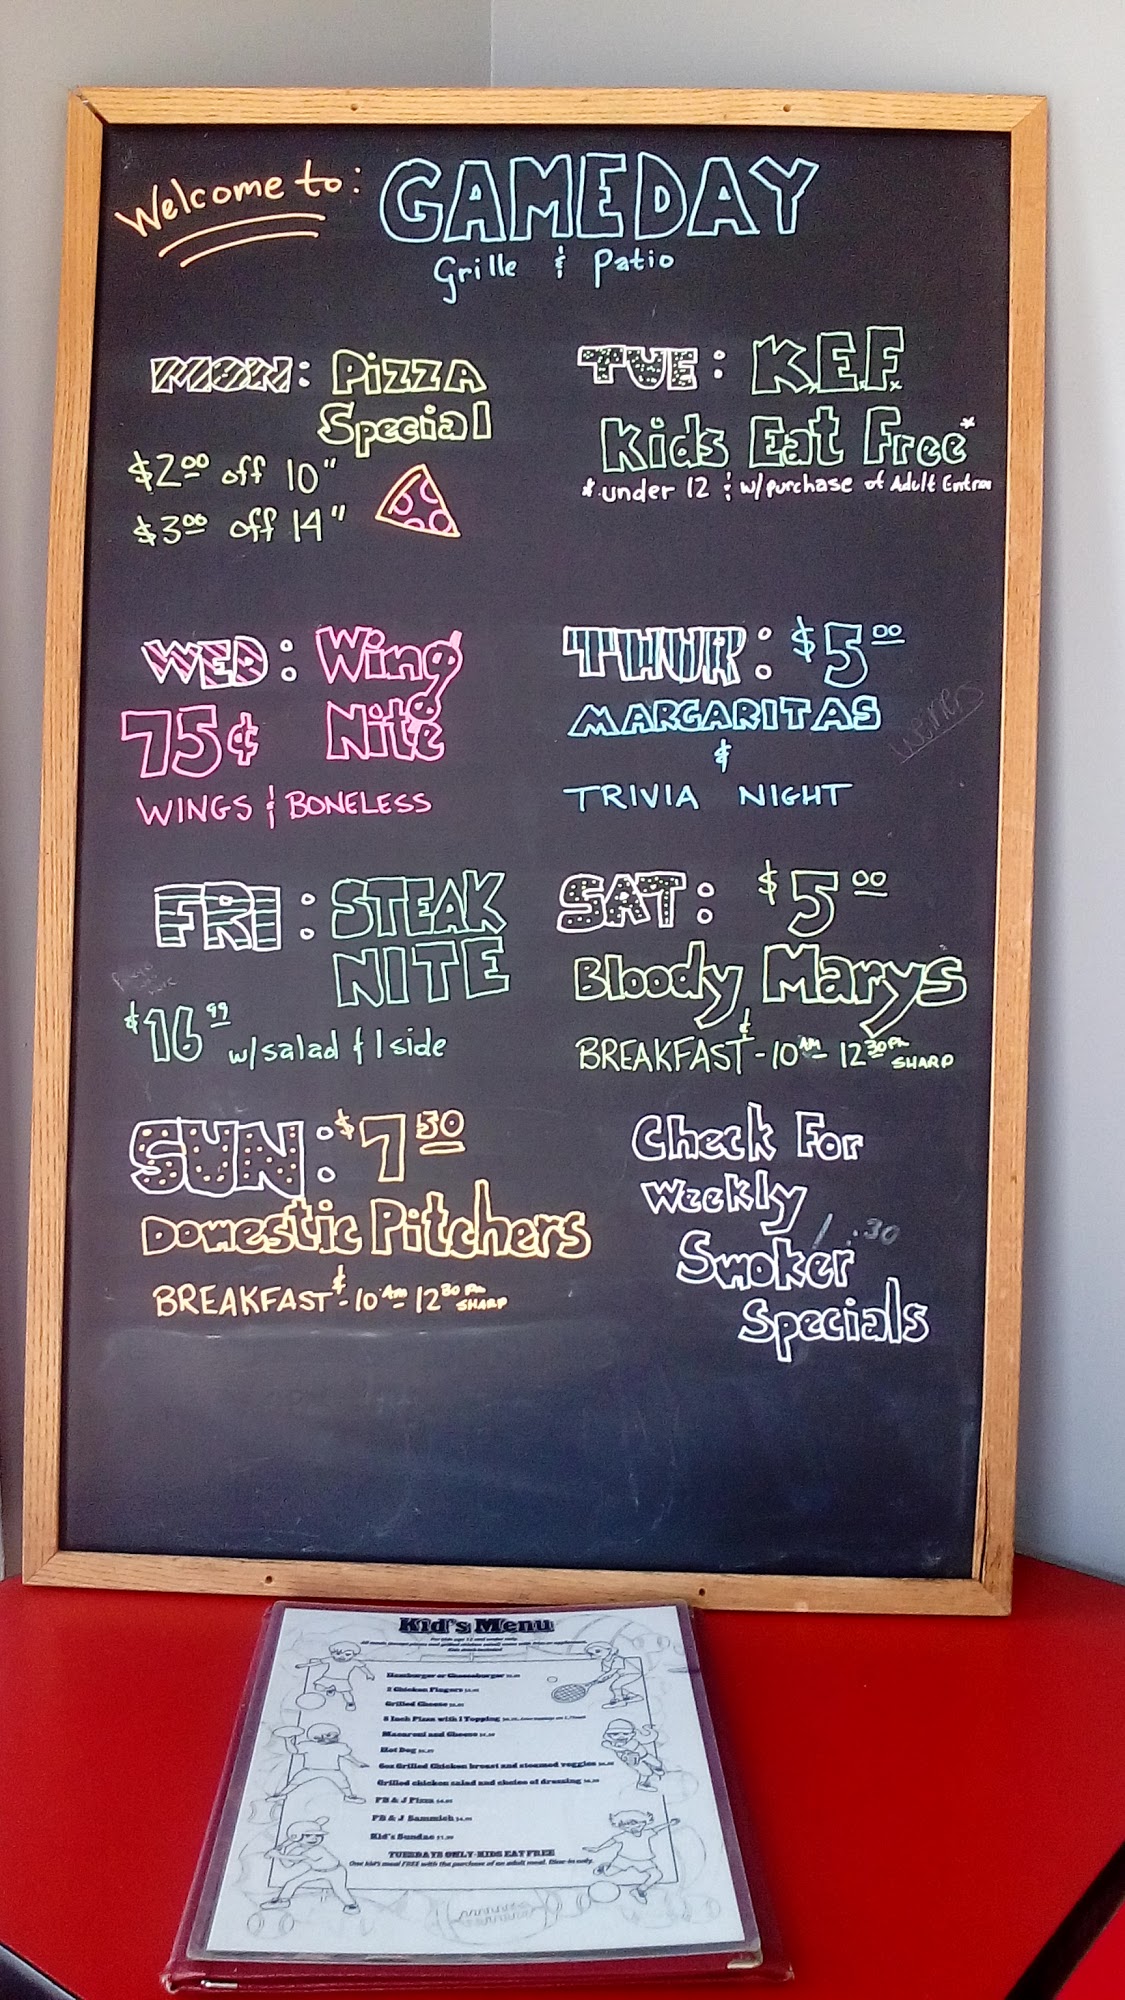 Welcome to: GAMEDAY
Grille & Patio
MON: Pizza
Special
$2.00 off 10"
$3.00 off 14"
TUE: K.E.F.
Kids Eat Free*
*under 12 & w/purchase of Adult Entree
WED: Wing
75¢ Nite
WINGS & BONELESS
THUR: $5.00
MARGARITAS
&
TRIVIA NIGHT
FRI: STEAK
NITE
$16.99 w/salad & 1 side
SAT: $5.00
Bloody Marys
&
BREAKFAST - 10AM - 12:30PM SHARP
SUN: $7.50
Domestic Pitchers
&
BREAKFAST - 10AM - 12:30PM SHARP
Check For
Weekly
Smoker
Specials
Kid's Menu
For kids age 12 and under only.
Hamburger or Cheeseburger
2 Chicken Fingers
Grilled Cheese
8 Inch Pizza with 1 Topping
Macaroni and Cheese
Hot Dog
6oz Grilled Chicken breast and steamed veggies
Grilled chicken salad and choice of dressing
PB & J Pizza
PB & J Sammich
Kid's Sundae
TUESDAYS ONLY-KIDS EAT FREE
One kid's meal FREE with the purchase of an adult meal. Dine-in only.